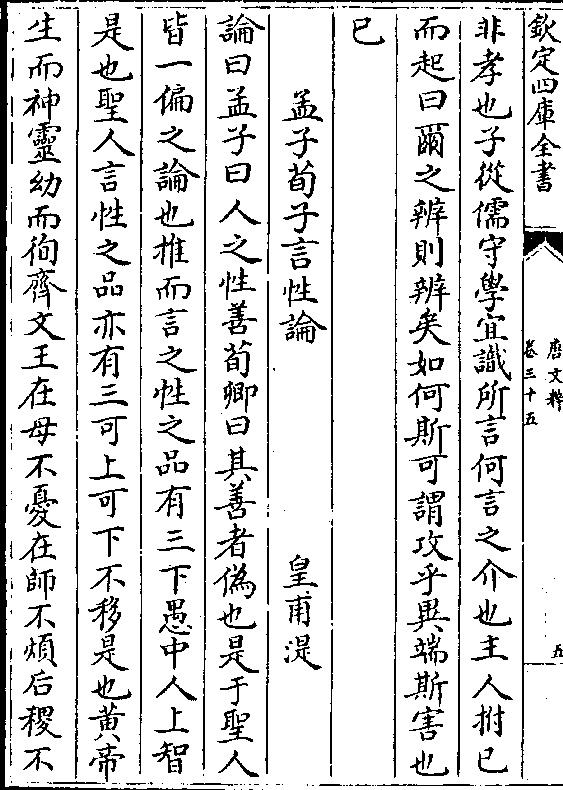 欽定四庫全書
唐文粹
卷三十五
五
非孝也子從儒守學宜識所言何言之介也主人拊已
而起曰爾之辨則辨矣如何斯可謂攻乎異端斯害也
已
孟子荀子言性論 皇甫湜
論曰孟子曰人之性善荀卿曰其善者偽也是于聖人
皆一偏之論也推而言之性之品有三下愚中人上智
是也聖人言性之品亦有三可上可下不移是也黄帝
生而神靈幼而徇齊文王在母不憂在師不煩后稷不